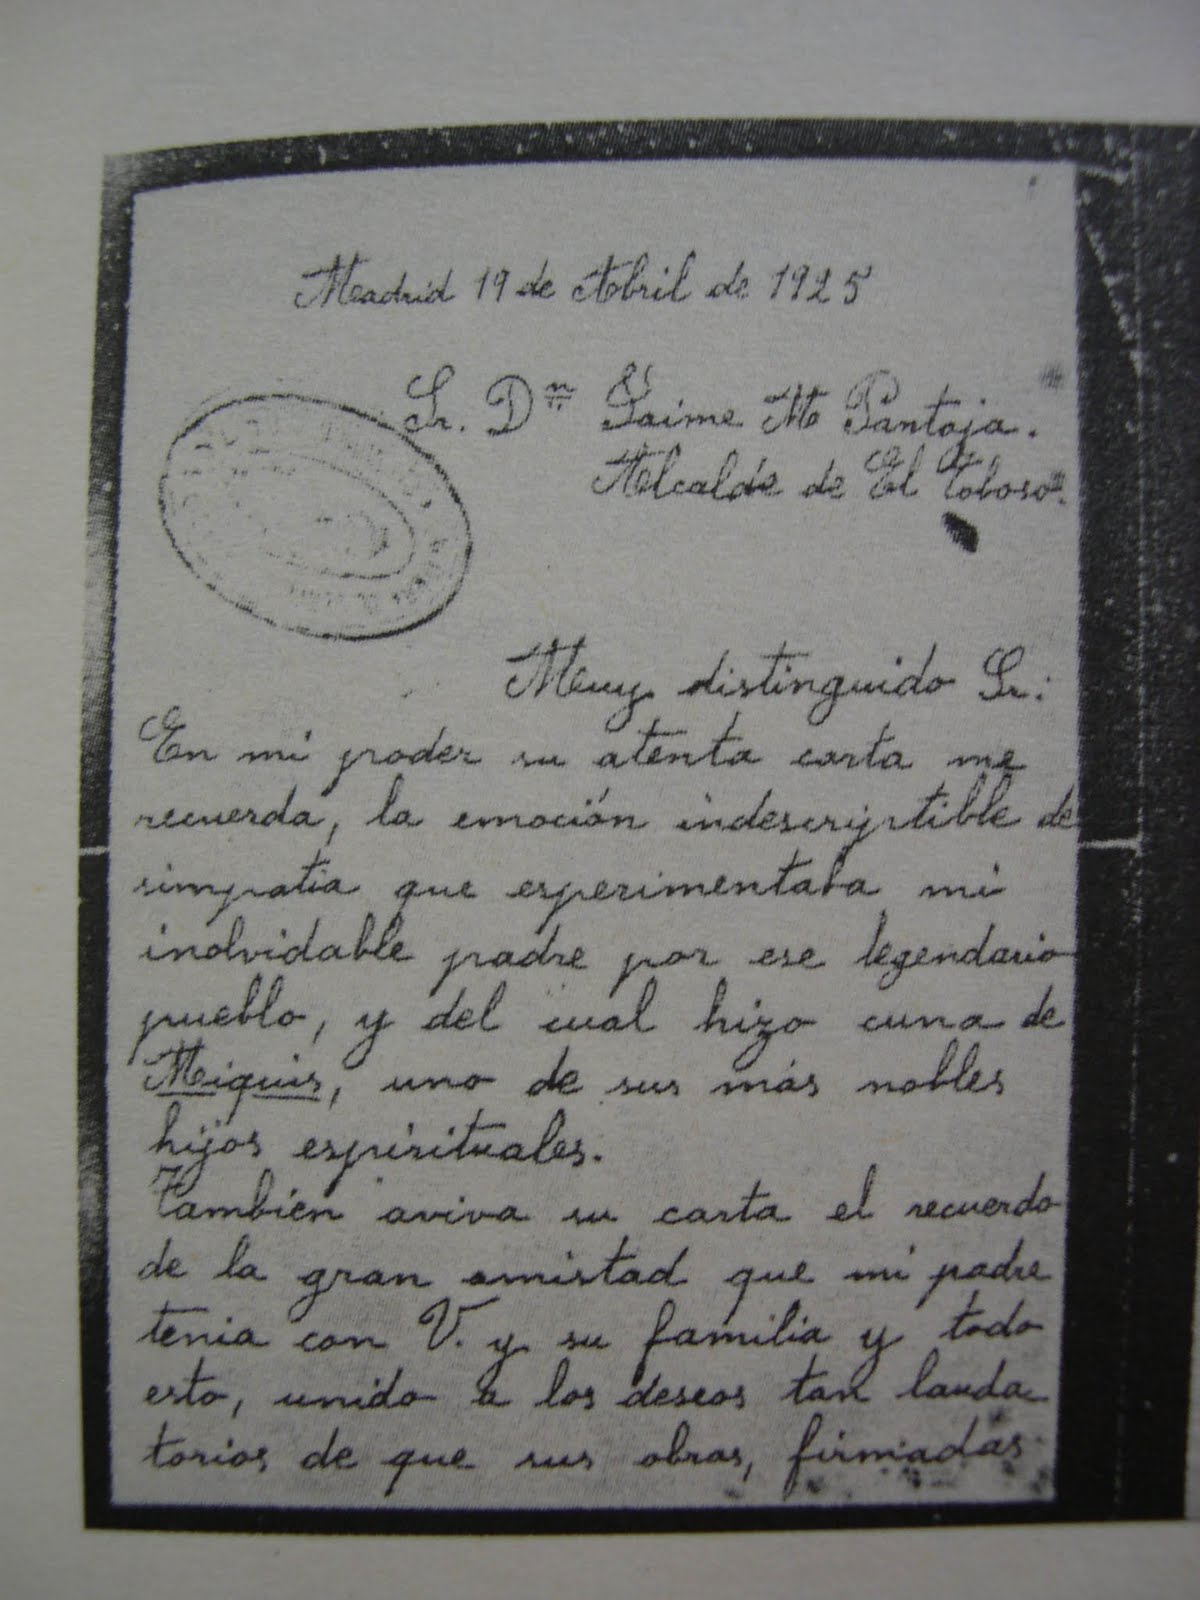 Madrid 19 de Abril de 1925
Sr. Dⁿ Jaime M Pantoja.
Alcalde de El Toboso.
Muy distinguido Sr:
En mi poder su atenta carta me
recuerda, la emoción indescriptible de
simpatia que esperimentaba mi
inolvidable padre por ese legendario
pueblo, y del cual hizo cuna de
Miquis, uno de sus más nobles
hijos espirituales.
También aviva su carta el recuerdo
de la gran amistad que mi padre
tenia con V. y su familia y todo
esto, unido a los deseos tan lauda
torios de que sus obras, firmadas